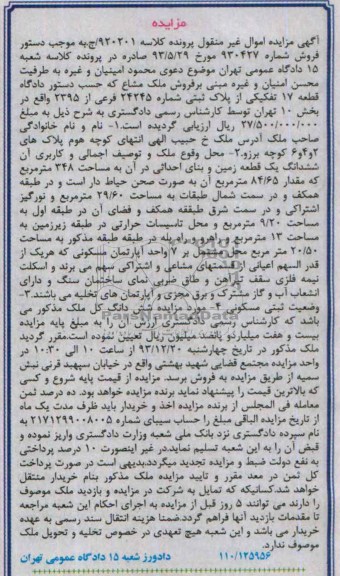 مزایده
آگهی مزایده اموال غیر منقول پرونده کلاسه ۹۲۰۲۰۱/ج.به موجب دستور
فروش شماره ۹۳۰۴۲۷ مورخ ۹۳/۵/۲۹ صادره در پرونده کلاسه شعبه
۱۵ دادگاه عمومی تهران موضوع دعوی محمود امینیان و غیره به طرفیت
محسن امنیان و غیره مبنی برفروش ملک مشاع که حسب دستور دادگاه
قطعه ۱۷ تفکیکی از پلاک ثبتی شماره ۲۴۲۴۵ فرعی از ۲۳۹۵ واقع در
بخش ۱۰ تهران توسط کارشناس رسمی دادگستری به شرح ذیل به مبلغ
۲۷/۵۰۰/۰۰۰/۰۰۰ ریال ارزیابی گردیده است.۱- نام و نام خانوادگی
صاحب ملک آدرس ملک خ حبیب الهی انتهای کوچه هوم پلاک های
۲و۴و۶ کوچه برزو.۲- محل وقوع ملک و توصیف اجمالی و کاربری آن
ششدانگ یک قطعه زمین و بنای احداثی در آن به مساحت ۳۴۸ مترمربع
که مقدار ۸۴/۶۵ مترمربع آن به صورت صحن حیاط دار است و در طبقه
همکف و در سمت شمال طبقات به مساحت ۲۹/۶۰ مترمربع و نورگیز
اشتراکی و در سمت شرق طبقفه همکف و فضای آن در طبقه اول به
مساحت ۹/۲۰ مترمربع و محل تاسیسات حرارتی در طبقه زیرزمین به
مساحت ۱۳ مترمربع و راهرو و راه پله در طبقه طبقه مذکور به مساحت
۲۰/۵۰ متر مربع محل مشتمل بر ۷ واحد آپارتمان مسکونی که هریک از
قدر السهم اعیانی از قسمتهای مشاعی و اشتراکی سهم می برند و اسکلت
نیمه فلزی سقف تیرآهن و طاق ضربی نمای ساختمان سنگ و دارای
انشعاب آب و گاز مشترک و برق مجزی و آپارتمان های تخلیه می باشند.۳-
وضعیت ثبتی مسکونی ۴- مورد مزایده شش دانگ کل ملک مذکور می
باشد که کارشناس رسمی دادگستری ارزش آن را به مبلغ پایه مزایده
بیست و هفت میلیاردو پانصد میلیون ریال تعیین نموده است.مقرر گردید
ملک مذکور در تاریخ چهارشنبه ۹۳/۱۲/۲۰ از ساعت ۱۰ الی ۱۰:۳۰ در
واحد مزایده مجتمع قضایی شهید بهشتی واقع در خیابان سپهبد قرنی نبش
سمیه از طریق مزایده به فروش برسد. مزایده از قیمت پایه شروع و کسی
که بالاترین قیمت را پیشنهاد نماید برنده مزایده خواهد بود. ده درصد ثمن
معامله فی المجلس از برنده مزایده اخذ و خریدار باید ظرف مدت یک ماه
از تاریخ مزایده الباقی مبلغ را حساب سیبای شماره ۲۱۷۱۲۹۹۰۰۸۰۰۵ به
نام سپرده دادگستری نزد بانک ملی شعبه وزارت دادگستری واریز نموده و
قبض آن را به این شعبه تسلیم نماید.در غیر اینصورت ۱۰ درصد پرداختی
به نفع دولت ضبط و مزایده تجدید میگردد.بدیهی است در صورت پرداخت
کل ثمن در معد مقرر و تایید مزایده ملک مذکور بنام خریدار منتقل
خواهد شد.کسانیکه که تمایل به شرکت در مزایده و بازدید ملک موصوف
را دارند می توانند ۵ روز قبل از مزایده به اجرای احکام این شعبه مراجعه
تا مقدمات بازدید آنها فراهم گردد.ضمنا هزینه انتقال سند رسمی به عهده
خریدار می باشد و این شعبه هیچ تعهدی در خصوص تخلیه و تحویل ملک
موصوف ندارد.
۱۱۰/۱۲۵۹۵۶ دادورز شعبه ۱۵ دادگاه عمومی تهران